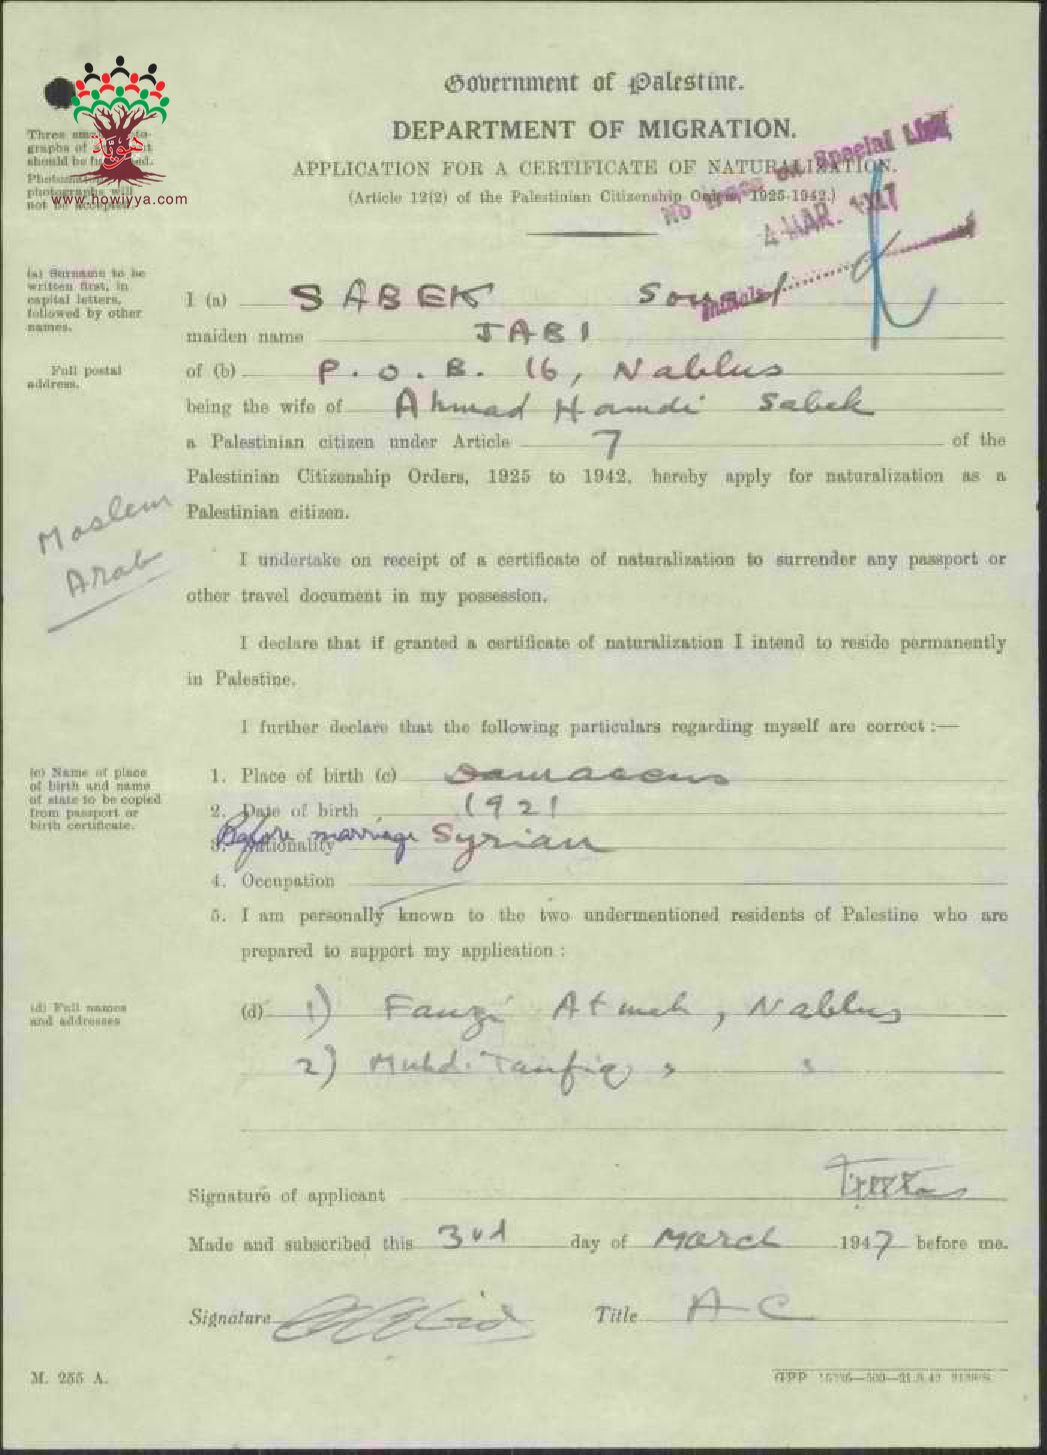 Government of Palestine.
DEPARTMENT OF MIGRATION.
APPLICATION FOR A CERTIFICATE OF NATURALIZATION.
(Article 12(2) of the Palestinian Citizenship Orders, 1925-1942.)
No Special List
4 MAR. 1947
Initials
هوية
www.howiyya.com
Three
graphs of
should be
photographs will
not be accepted.
(a) Surname to be
written first, in
capital letters,
followed by other
names.
I (a) SABEK
maiden name JABI
Full postal
address.
of (b) P.O.B. 16, Nablus
being the wife of Ahmad Hamdi Sabek
a Palestinian citizen under Article 7 of the
Palestinian Citizenship Orders, 1925 to 1942, hereby apply for naturalization as a
Palestinian citizen.
Moslem
Arab
I undertake on receipt of a certificate of naturalization to surrender any passport or
other travel document in my possession.
I declare that if granted a certificate of naturalization I intend to reside permanently
in Palestine.
I further declare that the following particulars regarding myself are correct :—
(c) Name of place
of birth and name
of state to be copied
from passport or
birth certificate.
1. Place of birth (c) Damascus
2. Date of birth 1921
Before marriage
3. Nationality Syrian
4. Occupation
5. I am personally known to the two undermentioned residents of Palestine who are
prepared to support my application :
(d) Full names
and addresses
(d) 1) Fauzi Atmeh, Nablus
2) Muhd. Taufiq , ,
Signature of applicant
Made and subscribed this 3rd day of March 1947 before me.
Signature Title A C
M. 255 A.
GPP